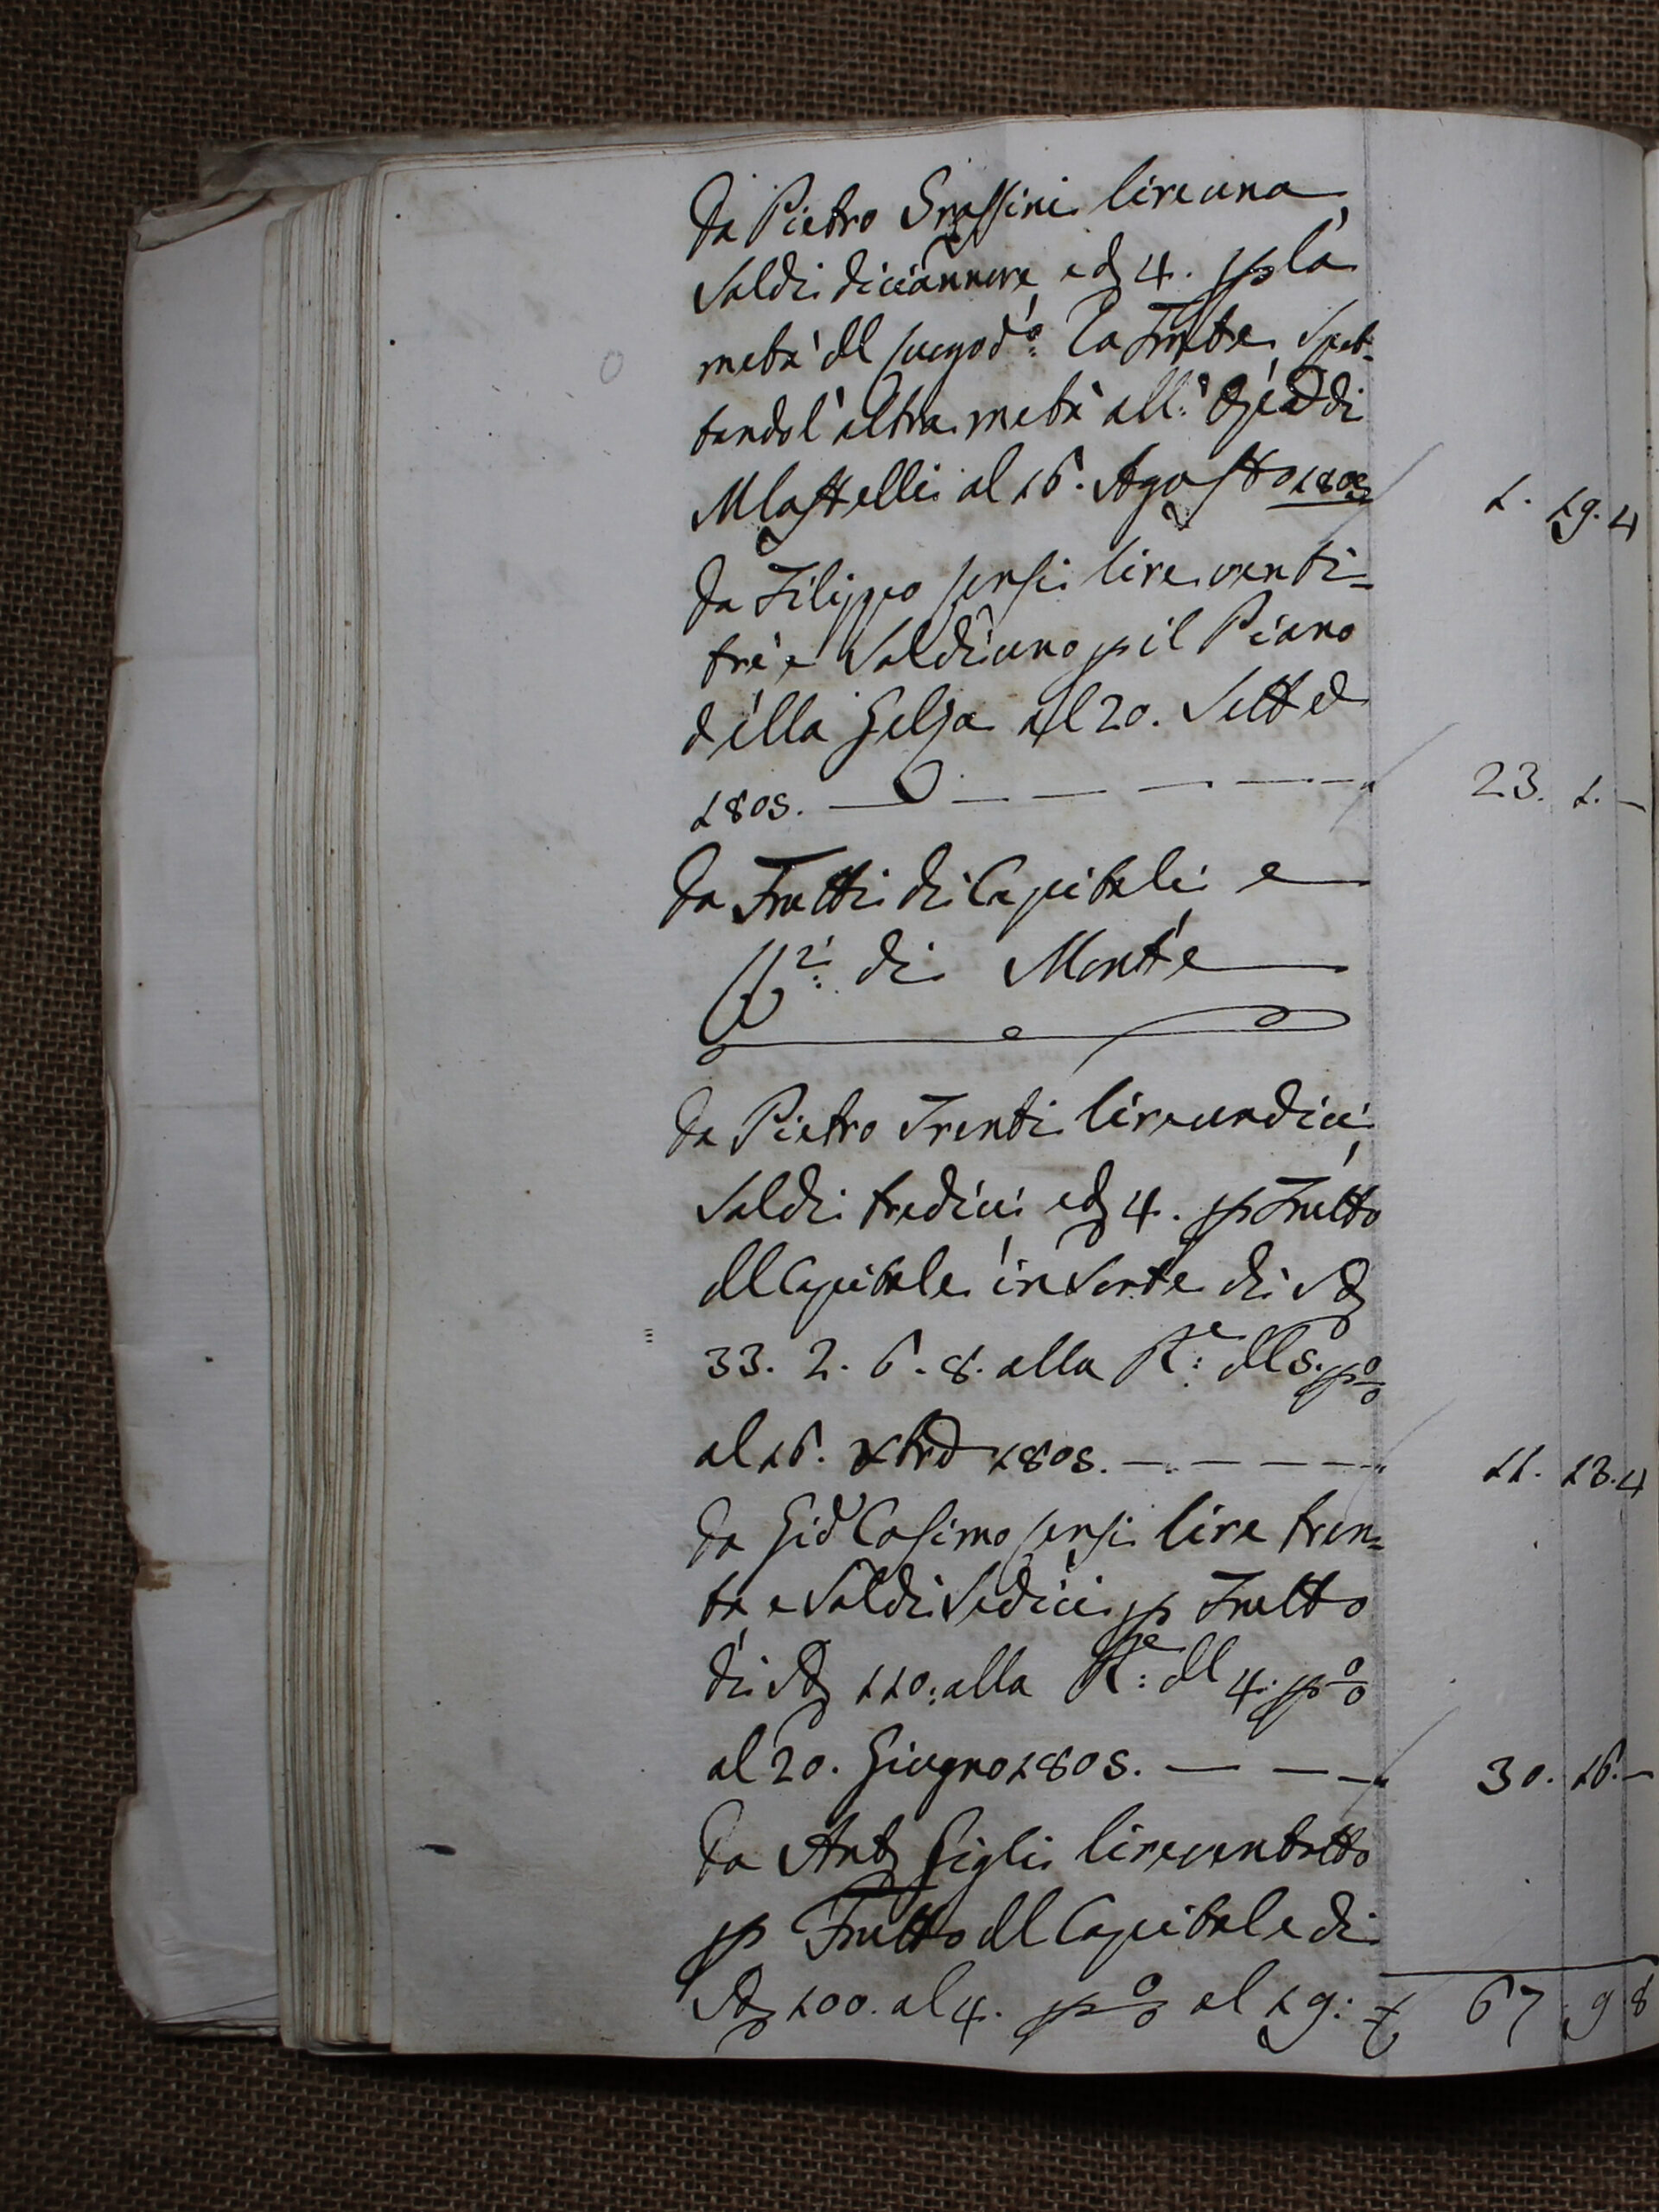 Da Pietro Grassini lire una,
Soldi diciannove, e d 4. p la
metà del luogo d.o La Spet-
tando l'altra metà all' di
Mlattelli al 16. Agosto 1805 1. 19. 4
Da Filippo Sensi lire venti=
trè e Soldi uno p il Piano
della Gelsa al 20. Sett
1805. — — — — 23. 1. —
Da Frutti di Capitali e
di Monte
Da Pietro Trenti lire undici,
Soldi tredici, e d 4. p Frutto
del Capitale in Sorte di Sd
33. 2. 6. 8. alla R.e del 5. p o/o
al 16. Xbre 1805. — — — — 11. 13. 4
Da Gio Cosimo Sensi lire tren=
ta, e Soldi Sedici p Frutto
di Sd 110: alla R.e del 4. p o/o
al 20. Giugno 1805. — — — 30. 16. —
Da Ant Gigli lire ventotto
p Frutto del Capitale di
Sd 100. al 4. p o/o al 19: £ 67 9 8